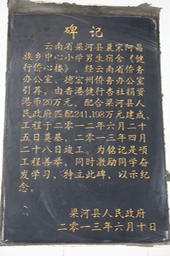 碑记
云南省梁河县囊宋阿昌
族乡中心小学男生宿舍《健
行侨心楼》，经云南省侨务
办公室、德宏州侨务办公室
引荐，由香港健行杏社捐资
港币20万元，配合梁河县人
民政府匹配241.198万元建成，
工程于二〇一二年六月十
五日奠基，二〇一三年四月
二十八日竣工，为铭记是项
工程善举，同时激励同学奋
发学习，特立此碑，以示纪
念。
梁河县人民政府
二〇一三年六月十日